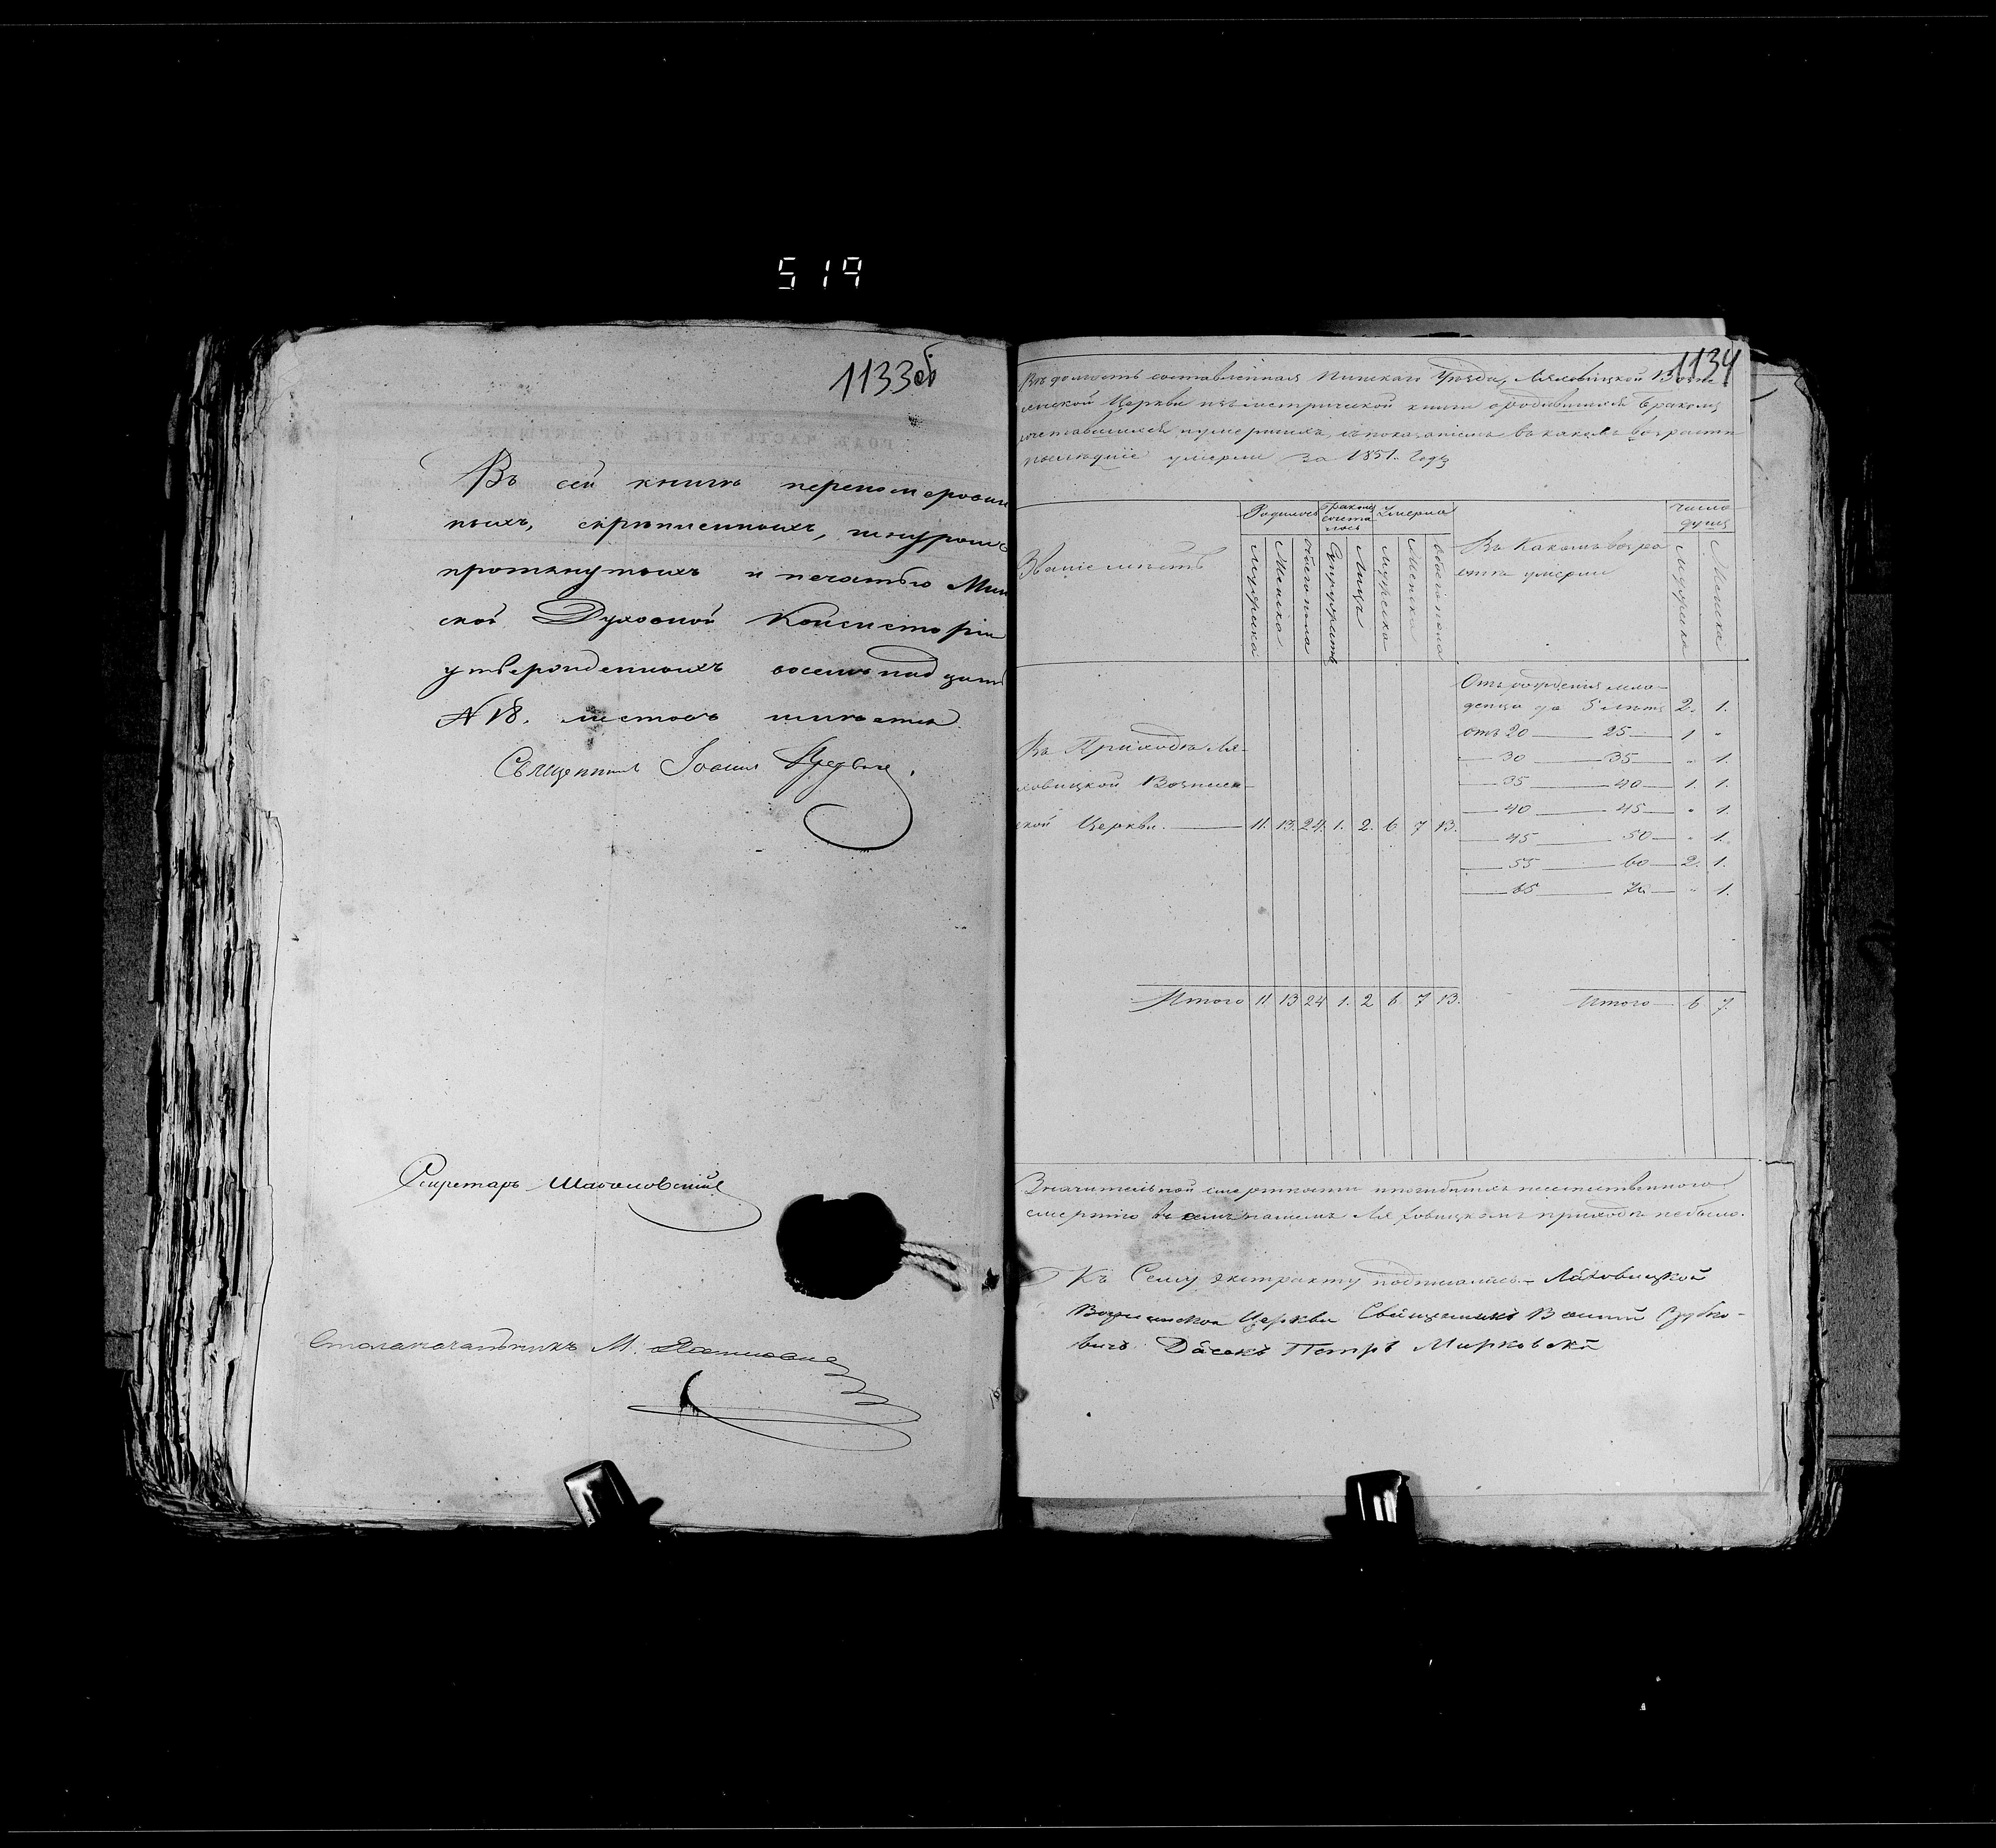 519
1133об
Въ сей книгѣ перенумерован
ныхъ, скрѣпленныхъ, шнуромъ
протянутыхъ и печатью Мин
ской Духовной Консисторіи
утвержденныхъ восемнадцать
№ 18. листовъ имѣется
Священникъ Іоаннъ
Секретарь
Столоначальникъ М.
1134
Вѣдомость составленная Пинскаго Уѣзда, Ляховицкой Возне-
сенской Церкви изъ метрической книги о родившихся бракомъ
сочетавшихся и умершихъ, съ показаніемъ въ какомъ возрастѣ
послѣдніе умерли за 1851. Годъ
Званіе мѣстъ
Родилось
Бракомъ
сочета
лось
Умерло
Въ Какомъ возра
стѣ умерли
число
душъ
Мужеска
Женска
обоего пола
Супружествъ
Лицъ
Мужеска
Женска
обоего пола
Мужеска
Женска
Отъ рожденія мла-
денца до 5 лѣтъ 2. 1.
отъ 20 — 25 — 1 "
— 30 — 35 — " 1.
— 35 — 40 — 1. 1.
— 40 — 45 — " 1.
— 45 — 50 — " 1.
— 55 — 60 — 2. 1.
— 65 — 70 — " 1.
Въ Приходѣ Ля-
ховицкой Вознесен-
ской Церкви. — 11. 13. 24. 1. 2. 6. 7 13.
Итого 11 13 24 1. 2 6 7 13.
Итого — 6. 7.
Значительной смертности и погибшихъ неестественною
смертію въ семъ нашемъ Ляховицкомъ приходѣ небыло.
Къ Сему экстракту подписались — Ляховицкой
Вознесенской Церкви Священникъ
Петръ Мирковскій